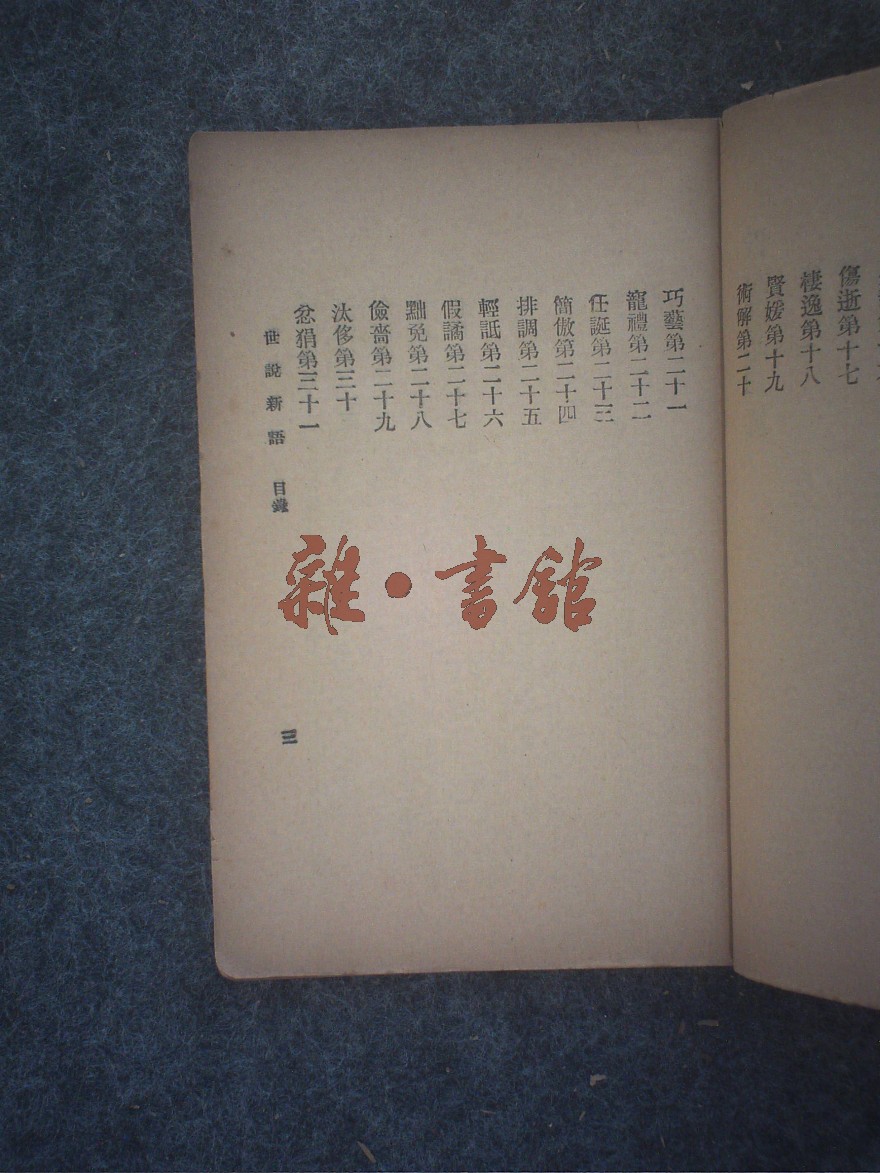 傷逝第十七
棲逸第十八
賢媛第十九
術解第二十
巧藝第二十一
寵禮第二十二
任誕第二十三
簡傲第二十四
排調第二十五
輕詆第二十六
假譎第二十七
黜免第二十八
儉嗇第二十九
汰侈第三十
忿狷第三十一
世說新語 目錄
三
雜·書館